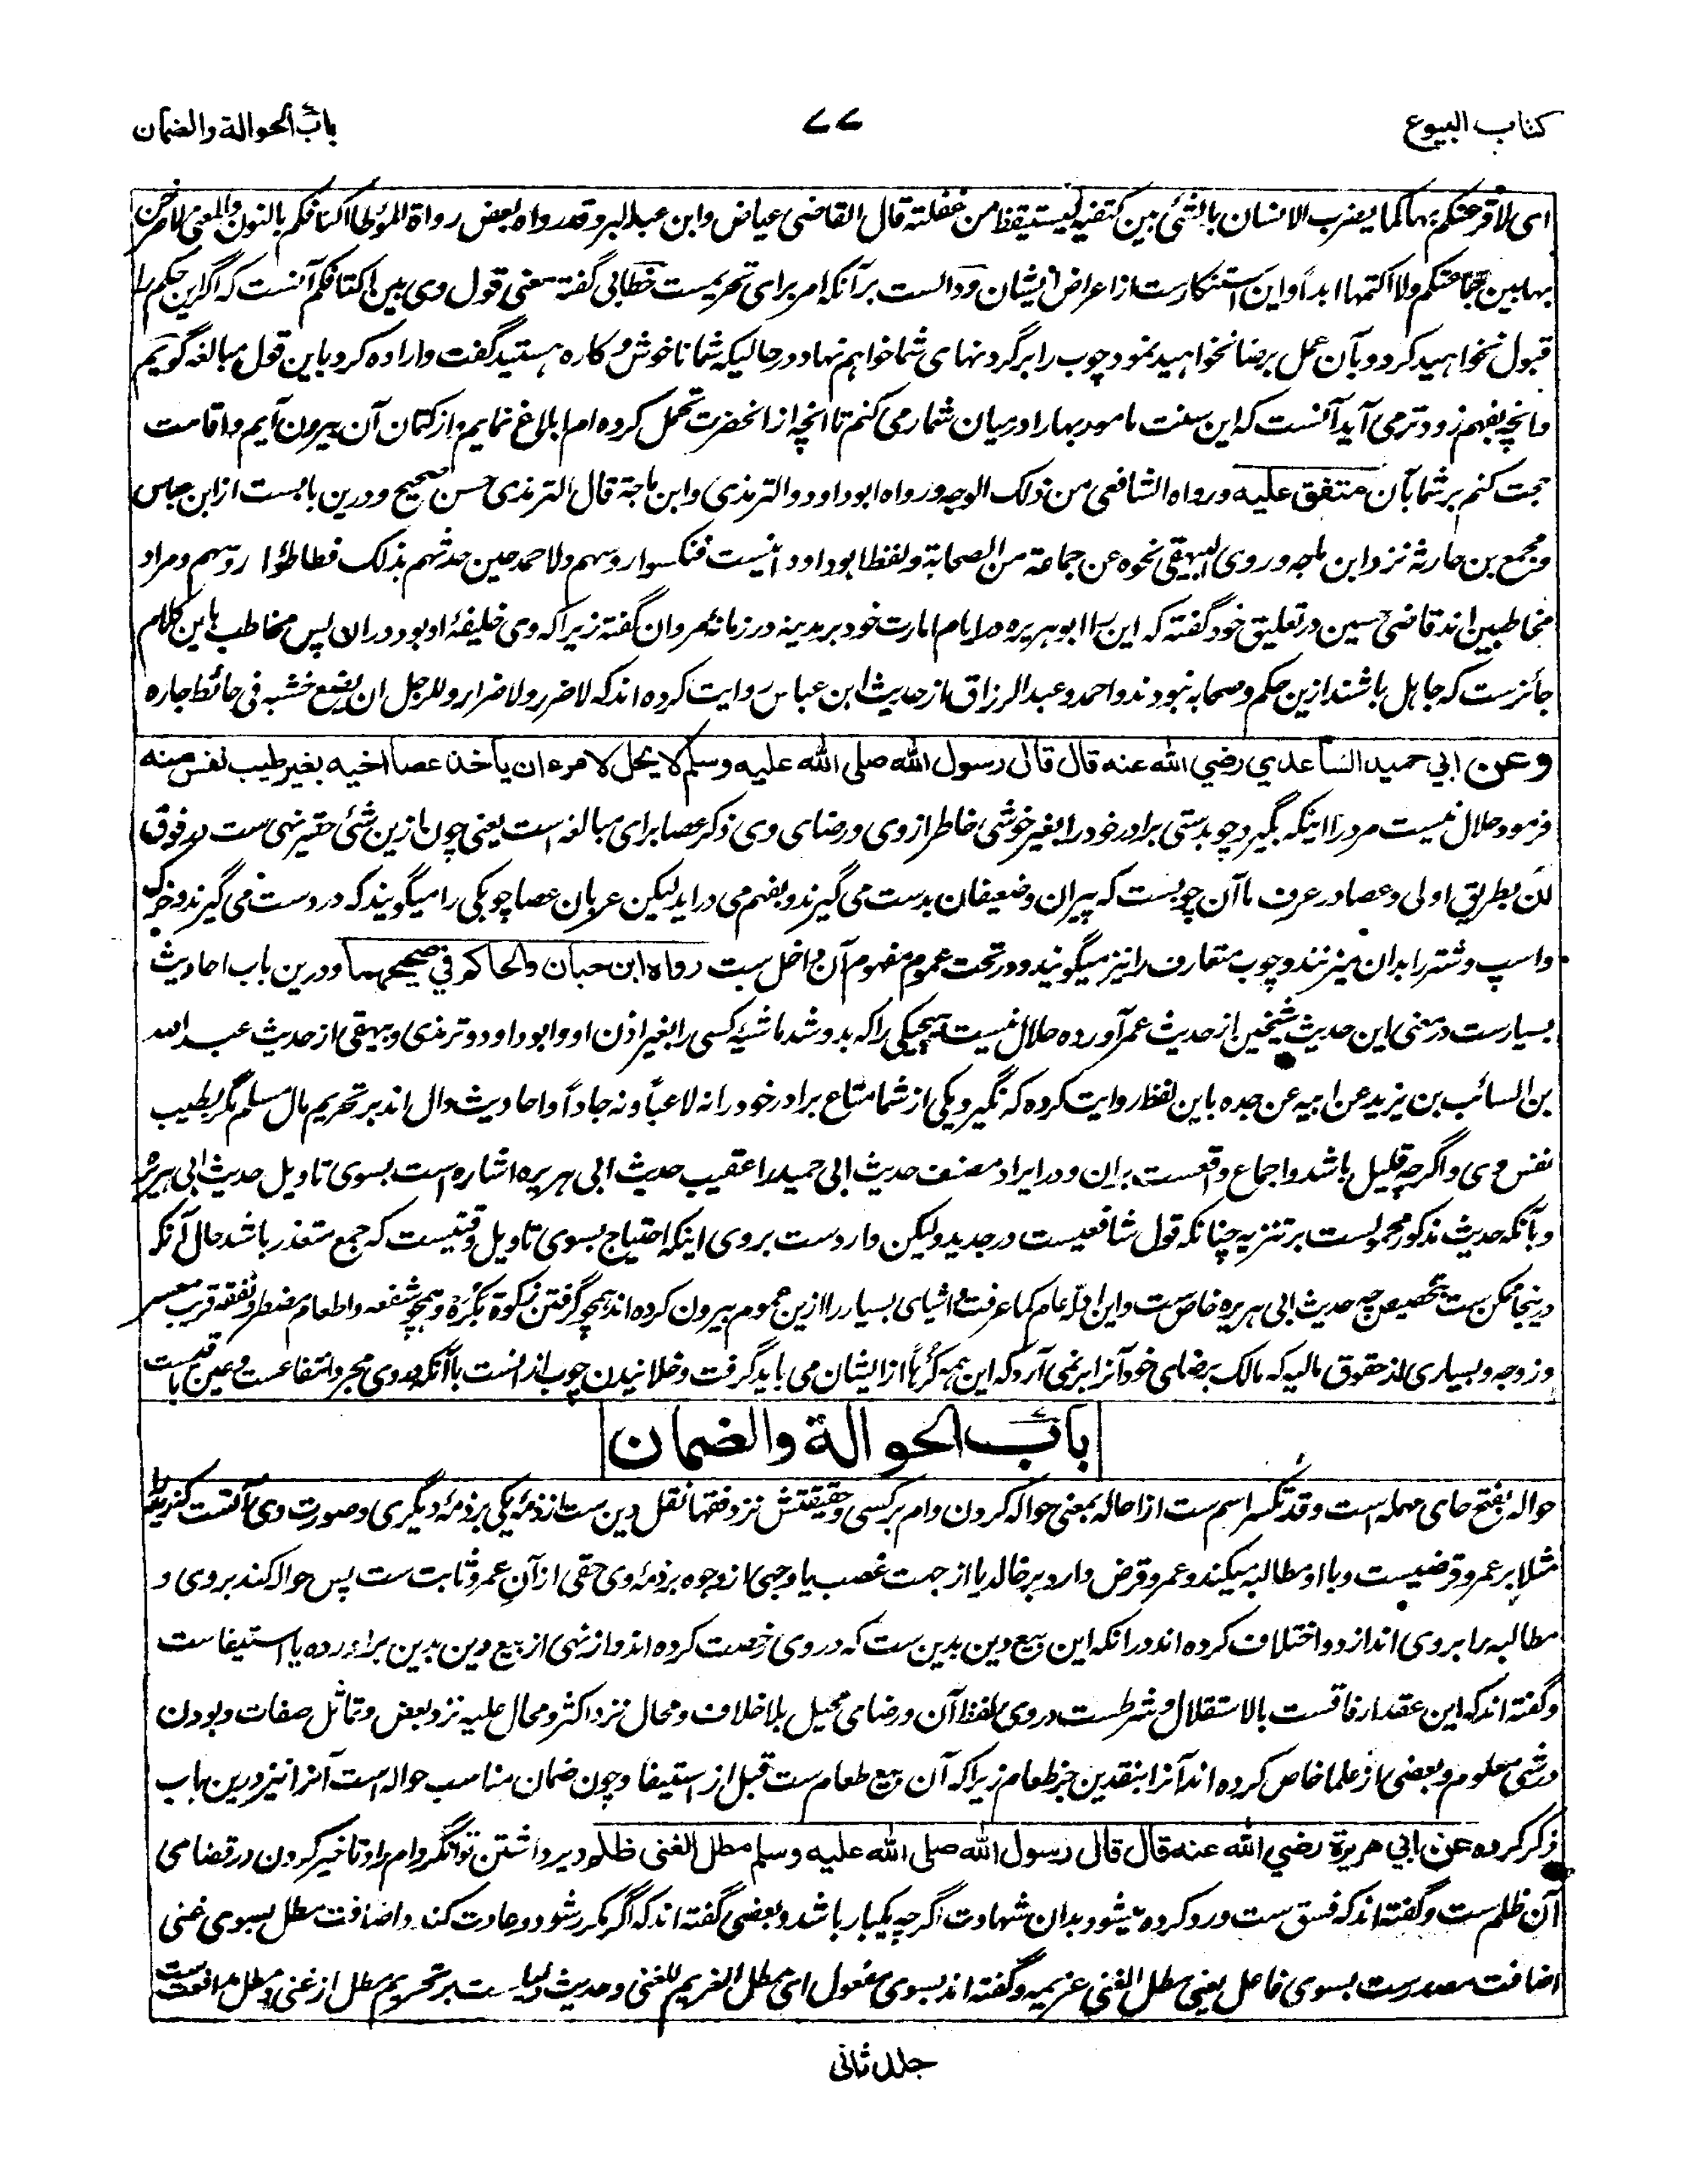 كتاب البيوع
۷۷
باب الحوالة والضمان
ای لاقرعنكم بها كما يضرب الانسان بالشئ بين كتفيه ليستيقظ من غفلته قال القاضی عياض وابن عبدالبر وقد رواه بعض رواة الموطا اكنافكم بالنون والمعنی
بها بين ولا اكتمها ابدا و اين استنكارست از اعراض ايشان ودالست بر آنكه امر برای تحريمست خطابی گفته معنی قول وی بين اكتافكم آنست كه اگر اين حكم را
قبول نخواهيد كرد و بآن عمل برضا نخواهيد نمود چوب را بر گردنهای شما خواهم نهاد در حاليكه شما ناخوش و كاره هستيد گفت و اراده كرد باين قول مبالغه گويم
وانچه بفهم زودتر می آيد آنست كه اين سنت مامور بها را در ميان شما رمی كنم تا انچه از انحضرت تحمل كرده ام ابلاغ نمايم و از كتمان آن بيرون آيم و اقامت
حجت كنم بر شما بآن متفق عليه ورواه الشافعی من ذلك الوجه ورواه ابوداود والترمذی وابن ماجة قال الترمذی حسن صحيح و درين بابست از ابن عباس
ومجمع بن حارثه نزد ابن ماجه وروی البيهقی نحوه عن جماعة من الصحابة ولفظ ابوداود اينست فنكسوا رؤسهم ولاحمد حين حدثهم بذلك فطاطؤا رؤسهم و مراد
مخاطبين اند قاضی حسين در تعليق خود گفته كه اين را ابوهريره در ايام امارت خود بر مدينه در زمانه مروان گفته زيرا كه وی خليفۀ او بود دران پس مخاطب باين كلام
جائزست كه جاهل باشند ازين حكم و صحابه نبودند و احمد و عبد الرزاق از حديث ابن عباس روايت كرده اند كه لا ضرر ولا ضرار وللرجل ان يضع خشبه فی حائط جاره
وعن ابي حميد الساعدي رضي الله عنه قال قال رسول الله صلى الله عليه وسلم لا يحل لامرء ان ياخذ عصا اخيه بغير طيب نفس منه
فرمود حلال نيست مرد را اينكه بگيرد چوبدستی برادر خود را بغير خوشی خاطر از وی و رضای وی ذكر عصا برای مبالغه است يعنی چون ازين شئ حقير نهی ست در فوق
آن بطريق اولی و عصا در عرف ما آن چوبست كه پيران و ضعيفان بدست می گيرند و بفهم می درايد ليكن عربان عصا چوبكی را ميگويند كه در دست می گيرند و خر
و اسپ و شتر را بدان ميزنند و چوب متعارف را نيز ميگويند و در تحت عموم مفهوم آن داخل ست رواه ابن حبان والحاكم في صحيحهما و درين باب احاديث
بسيارست در معنی اين حديث شيخين از حديث عمر آورده حلال نيست هيچيكی را كه بدوشد ماشيۀ كسی را بغير اذن او و ابوداود و ترمذی و بيهقی از حديث عبد الله
بن السائب بن يزيد عن ابيه عن جده باين لفظ روايت كرده كه نگيرد يكی از شما متاع برادر خود را نه لاعبا و نه جادا و احاديث دال اند بر تحريم مال مسلم مگر بطيب
نفس وی و اگرچه قليل باشد و اجماع واقعست بران و در ايراد مصنف حديث ابی حميد را عقيب حديث ابی هريره اشاره است بسوی تاويل حديث ابی هريره
و بآنكه حديث مذكور محمولست بر تنزيه چنانكه قول شافعيست در جديد وليكن واردست بر وی اينكه احتياج بسوی تاويل وقتيست كه جمع متعذر باشد حال آنكه
درينجا ممكن ست تخصيص چه حديث ابی هريره خاص ست و اين ادله عام كما عرفت و اشيای بسيار را ازين عموم بيرون كرده اند همچو گرفتن زكوة بكره و همچو شفعه و اطعام مضطر و نفقه قريب معسر
و زوجه و بسياری از حقوق ماليه كه مالك برضای خود آنرا برنمی آرد كه اين همه كرها از ايشان می بايد گرفت و خلانيدن چوب ازانست با آنكه در وی مجرد انتفاعست و عين باقيست
باب الحوالة والضمان
حواله بفتح حای مهمله است وقد تكسر اسم ست از احاله بمعنی حواله كردن وام بر كسی و حقيقتش نزد فقها نقل دين ست از ذمۀ يكی بر ذمۀ ديگری و صورت وی آنست كه زيد را
مثلا بر عمرو قرضيست و با او مطالبه ميكند و عمرو قرض دارد بر خالد يا از جهت غصب يا وجهی از وجوه بر ذمۀ وی حقی از آن عمرو ثابت ست پس حواله كند بر وی و
مطالبه را بر وی اندازد و اختلاف كرده اند درانكه اين بيع دين بدين ست كه در وی رخصت كرده اند و از نهی از بيع دين بدين براورده يا استيفا ست
و گفته اند كه اين عقد ارفاقست بالاستقلال و شرطست در وی لفظ آن و رضای محيل بلا خلاف و محال نزد اكثر و محال عليه نزد بعض و تماثل صفات و بودن
در شئ معلوم و بعضی از علما خاص كرده اند آنرا بنقدين جز طعام زيرا كه آن بيع طعام ست قبل از استيفا و چون ضمان مناسب حواله است آنرا نيز درين باب
ذكر كرده عن ابي هريرة رضي الله عنه قال قال رسول الله صلى الله عليه وسلم مطل الغنى ظلم دير داشتن توانگر وام را و تاخير كردن در قضای
آن ظلم ست و گفته اند كه فسق ست و رد كرده ميشود بدان شهادت اگرچه يكبار باشد و بعضی گفته اند كه اگر مكرر شود و عادت كند و اضافت مطل بسوی غنی
اضافت مصدرست بسوی فاعل يعنی مطل الغنی غريمه و گفته اند بسوی مفعول ای مطل الغريم للغنی و حديث دليل ست بر تحريم مطل از غنی و مطل مدافعت ست
جلد ثانی